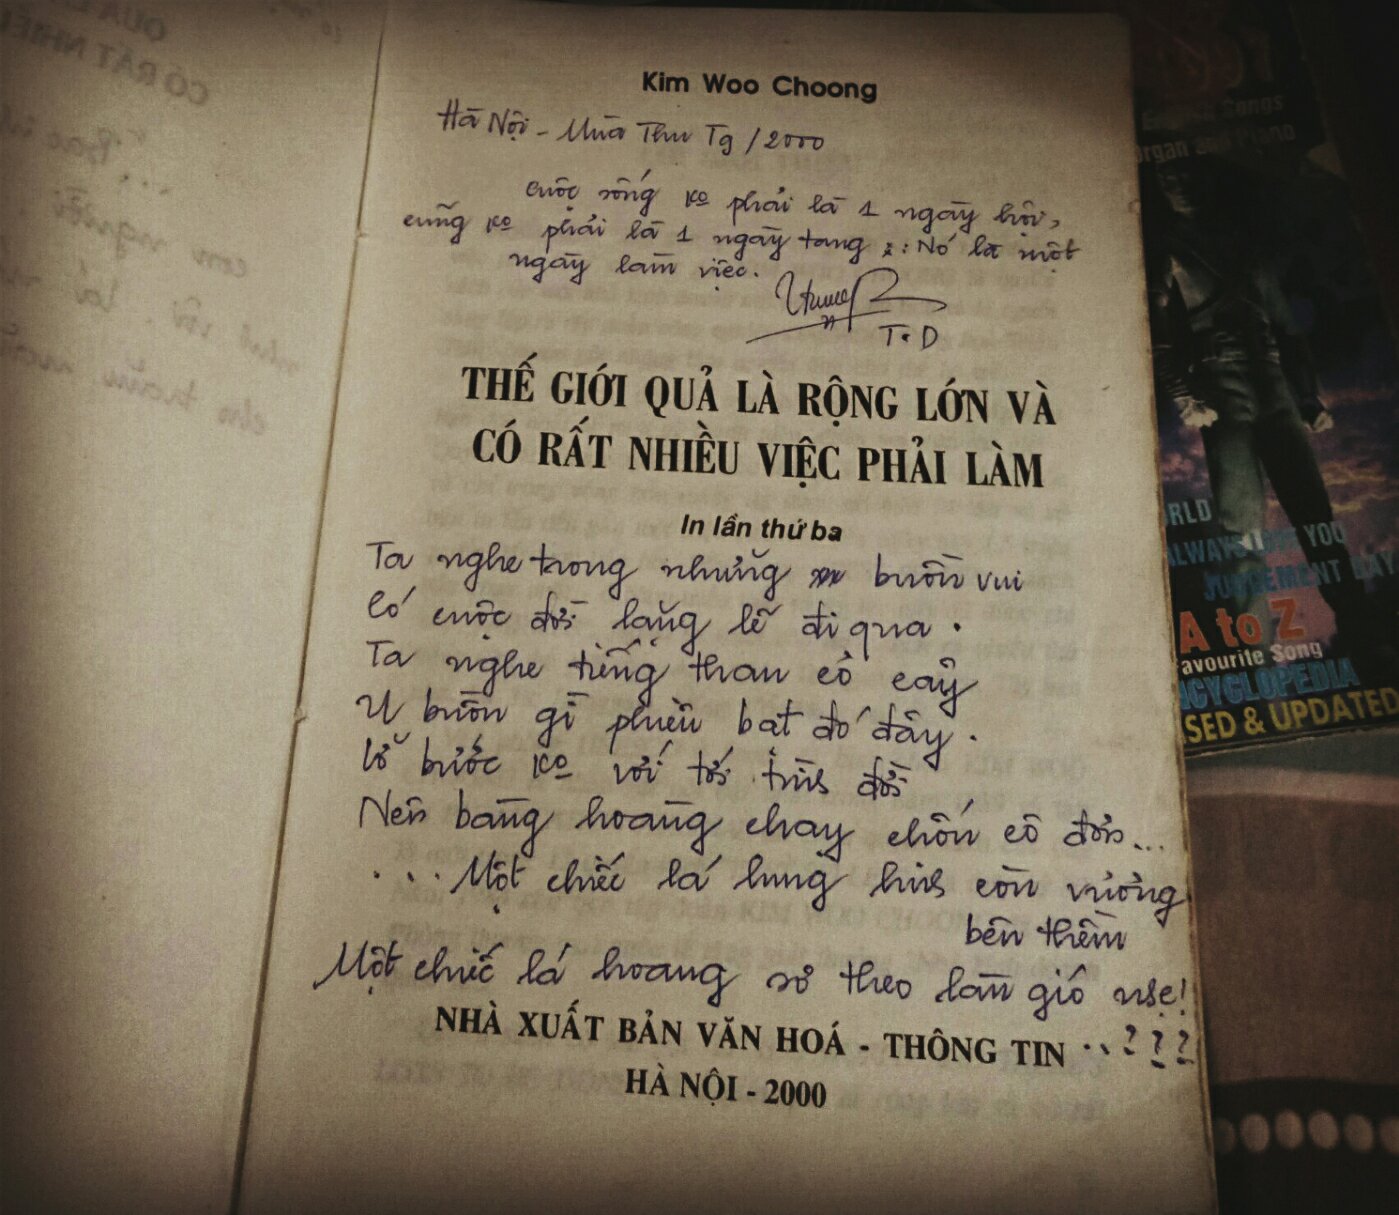 Kim Woo Choong
Hà Nội - Mùa Thu Tg /2000
cuộc sống ko phải là 1 ngày hội,
cũng ko phải là 1 ngày tang : Nó là một
ngày làm việc.
T.D
THẾ GIỚI QUẢ LÀ RỘNG LỚN VÀ
CÓ RẤT NHIỀU VIỆC PHẢI LÀM
In lần thứ ba
Ta nghe trong những buồn vui
Có cuộc đời lặng lẽ đi qua.
Ta nghe tiếng than cỏ cây
Ư buồn gì phiền bat đó đây.
Lỡ bước ko với tới tình đời
Nên bàng hoàng chạy chốn cô đơn...
... Một chiếc lá lung linh còn vương
bên thềm
Một chiếc lá hoang sơ theo làn gió nhẹ!
..???
NHÀ XUẤT BẢN VĂN HOÁ - THÔNG TIN
HÀ NỘI - 2000
Songs
organ and Piano
ORLD
ALWAYS LOVE YOU
JUDGEMENT DAY
A to Z
avourite Song
NCYCLOPEDIA
SED & UPDATED
QUẢ L
CÓ RẤT NHIỀU
con người
cho